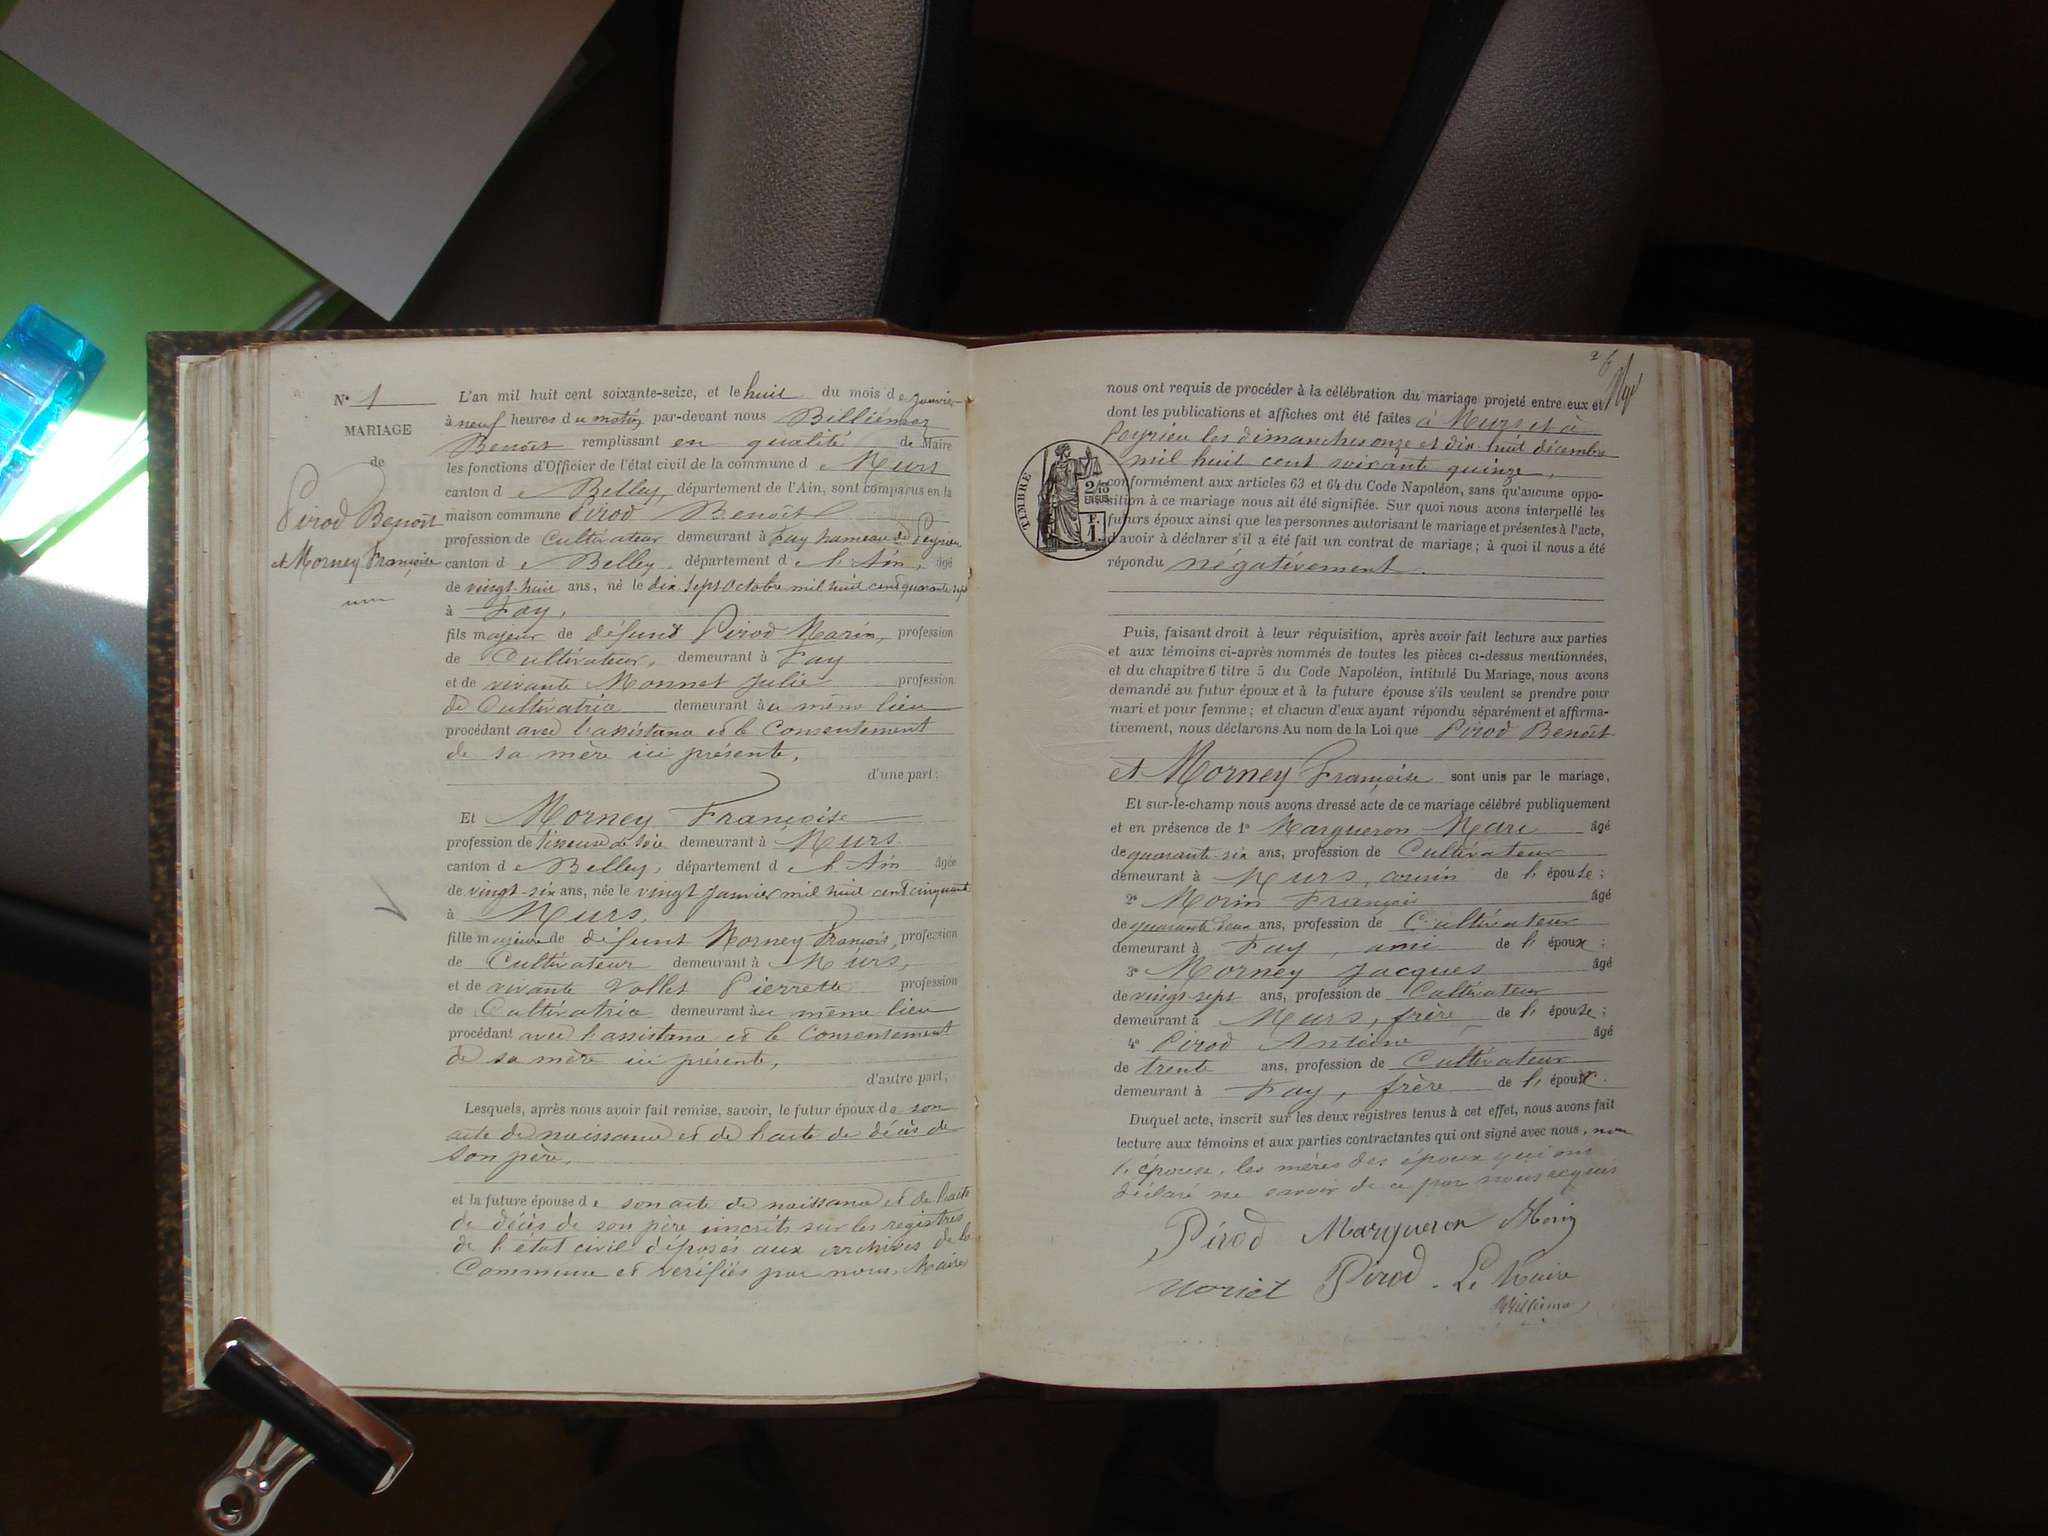 N° 1
MARIAGE
de
Pirod Benoît
et Morney Françoise
L'an mil huit cent soixante-seize, et le huit du mois de Janvier
à neuf heures du matin par-devant nous Billiemaz
Benoît remplissant en qualité de Maire
les fonctions d'Officier de l'état civil de la commune de Murs
canton de Belley, département de l'Ain, sont comparus en la
maison commune Pirod Benoît
profession de Cultivateur demeurant à Fay hameau de Peyrieu
canton de Belley, département de l'Ain, âgé
de vingt-huit ans, né le dix sept Octobre mil huit cent quarante sept
à Fay,
fils majeur de défunt Pirod Marin, profession
de Cultivateur, demeurant à Fay
et de vivante Monnet Julie profession
de Cultivatrice demeurant au même lieu
procédant avec l'assistance et le Consentement
de sa mère ici présente,
d'une part;
Et Morney Françoise
profession de tisseuse de soie demeurant à Murs
canton de Belley, département de l'Ain âgée
de vingt-six ans, née le vingt Janvier mil huit cent cinquante
à Murs,
fille majeure de défunt Morney François, profession
de Cultivateur demeurant à Murs,
et de vivante Vollet Pierrette profession
de Cultivatrice demeurant au même lieu
procédant avec l'assistance et le Consentement
de sa mère ici présente,
d'autre part;
Lesquels, après nous avoir fait remise, savoir, le futur époux de son
acte de naissance et de l'acte de décès de
son père,
et la future épouse de son acte de naissance et de l'acte
de décès de son père inscrits sur les registres
de l'état civil déposés aux archives de la
Commune et vérifiés par nous, Maire
nous ont requis de procéder à la célébration du mariage projeté entre eux et
dont les publications et affiches ont été faites à Murs et à
Peyrieu les dimanches onze et dix-huit décembre
mil huit cent soixante quinze,
TIMBRE
2/10
EN SUS
F.
1.
conformément aux articles 63 et 64 du Code Napoléon, sans qu'aucune oppo-
sition à ce mariage nous ait été signifiée. Sur quoi nous avons interpellé les
futurs époux ainsi que les personnes autorisant le mariage et présentes à l'acte,
d'avoir à déclarer s'il a été fait un contrat de mariage; à quoi il nous a été
répondu négativement.
Puis, faisant droit à leur réquisition, après avoir fait lecture aux parties
et aux témoins ci-après nommés de toutes les pièces ci-dessus mentionnées,
et du chapitre 6 titre 5 du Code Napoléon, intitulé Du Mariage, nous avons
demandé au futur époux et à la future épouse s'ils veulent se prendre pour
mari et pour femme; et chacun d'eux ayant répondu séparément et affirma-
tivement, nous déclarons Au nom de la Loi que Pirod Benoît
et Morney Françoise sont unis par le mariage,
Et sur-le-champ nous avons dressé acte de ce mariage célébré publiquement
et en présence de 1° Margueron Marc âgé
de quarante-six ans, profession de Cultivateur
demeurant à Murs, cousin de l'épouse;
2° Morin François âgé
de quarante deux ans, profession de Cultivateur
demeurant à Fay, ami de l'époux;
3° Morney Jacques âgé
de vingt-sept ans, profession de Cultivateur
demeurant à Murs, frère de l'épouse;
4° Pirod Antoine âgé
de trente ans, profession de Cultivateur
demeurant à Fay, frère de l'époux.
Duquel acte, inscrit sur les deux registres tenus à cet effet, nous avons fait
lecture aux témoins et aux parties contractantes qui ont signé avec nous, non
l'épouse, les mères des époux qui ont
déclaré ne savoir de ce par nous requis
Pirod Margueron Morin
Pirod Le Maire